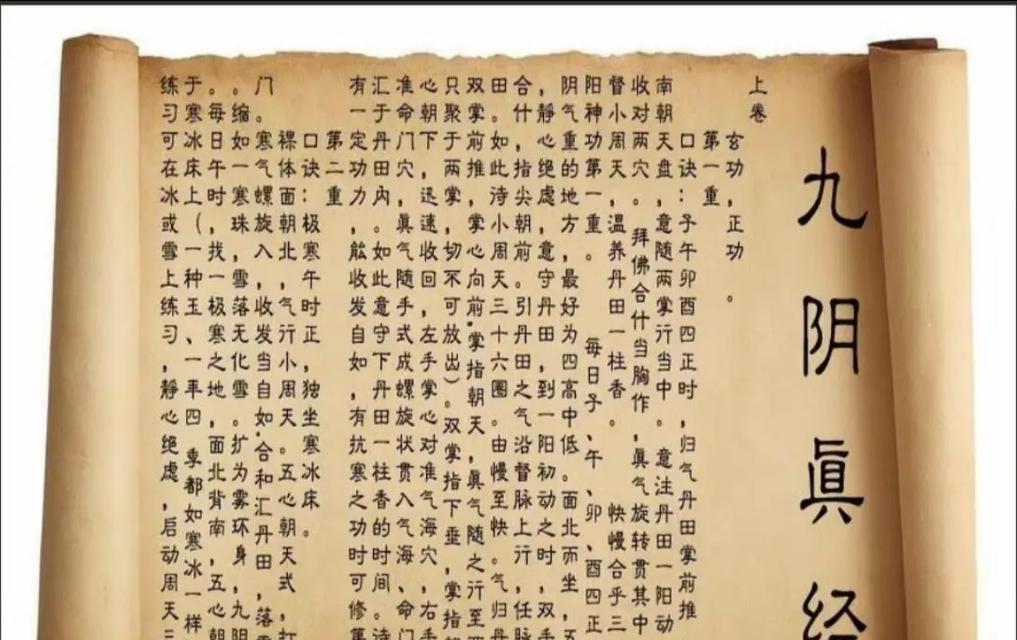 九阴眞经
上卷
玄功，正功。
第一重，
口诀：子午卯酉四正时，归气丹田掌前推
南朝天盘，意随两掌行当中。意注丹田一阳动
收对两穴。拜佛合什当胸作，眞气旋转贯其中
督小周天，温养丹田一柱香。快慢合乎三
阳神功第一重。每日子、午、卯、酉四正
阴气重的地方，最好为四高中低。面北而坐，五
，静心绝虑，意守丹田，到一阳初动之时，双手
合什，指尖朝前。引丹田之气沿督脉上行，任脉
田。如此待小周天三十六圈。由慢至快。气归丹
双掌前推，掌心向前.掌指朝天，眞气随之行至
只聚于两掌，切不可放出）。双掌指下垂，掌指
心朝下，迅速收回，左手掌心对准气海穴，右手
准命门穴，眞气随手式成螺旋状贯入气海、命门
汇于丹田内。如此意守下丹田一柱香的时间。待
有一定功力，能收发自如，有抗寒之功时可修第
第二重
口诀：极寒午时正，独坐寒冰床。
裸体面朝北，气行小周天。五心朝天式，打
门。寒气螺旋入，收发当自如.合和汇丹田，落雪
。缩如一寒珠，雪落无化雪。扩为雾环身，九阴
。每日午时，找一极寒之地，面北背南，五心朝
于寒冰床上（一种玉、一年四季都如寒冰一样
练习可在冰或雪上练习，静心绝虑，启动周天三